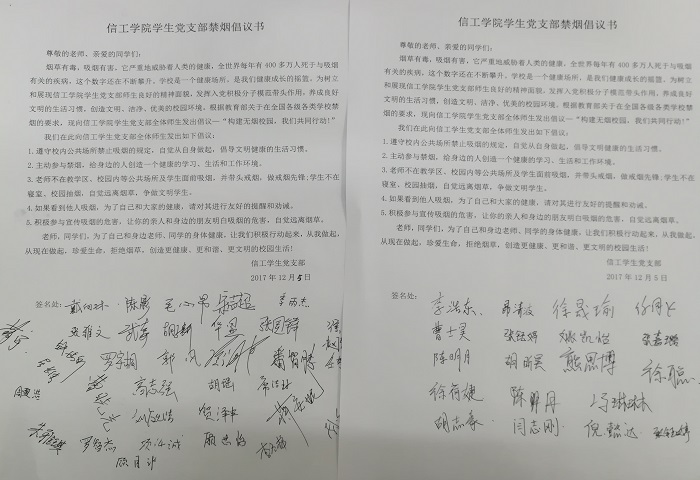 信工学院学生党支部禁烟倡议书
尊敬的老师、亲爱的同学们：
烟草有毒，吸烟有害，它严重地威胁着人类的健康，全世界每年有 400 多万人死于与吸烟
有关的疾病，这个数字还在不断攀升。学校是一个健康场所，是我们健康成长的摇篮，为树立
和展现信工学院学生党支部师生良好的精神面貌，发挥入党积极分子模范带头作用，养成良好
文明的生活习惯，创造文明、洁净、优美的校园环境，根据教育部关于在全国各级各类学校禁
烟的要求，现向信工学院学生党支部全体师生发出倡议—“构建无烟校园，我们共同行动!”
我们在此向信工学院学生党支部全体师生发出如下倡议：
1.遵守校内公共场所禁止吸烟的规定，自觉从自身做起，倡导文明健康的生活习惯。
2.主动参与禁烟，给身边的人创造一个健康的学习、生活和工作环境。
3.老师不在教学区、校园内等公共场所及学生面前吸烟，并带头戒烟，做戒烟先锋；学生不在
寝室、校园抽烟，自觉远离烟草，争做文明学生。
4.如果看到他人吸烟，为了自己和大家的健康，请对其进行友好的提醒和劝诫。
5.积极参与宣传吸烟的危害，让你的亲人和身边的朋友明白吸烟的危害，自觉远离烟草。
老师、同学们，为了自己和身边老师、同学的身体健康，让我们积极行动起来，从我做起，
从现在做起，珍爱生命，拒绝烟草，创造更健康、更和谐、更文明的校园生活!
信工学院学生党支部
2017 年 12 月 5 日
签名处：
陈彪
罗宇翔
高志强
胡瑶
贺泽丰
罗智杰
信工学院学生党支部禁烟倡议书
尊敬的老师、亲爱的同学们：
烟草有毒，吸烟有害，它严重地威胁着人类的健康，全世界每年有 400 多万人死于与吸烟
有关的疾病，这个数字还在不断攀升。学校是一个健康场所，是我们健康成长的摇篮，为树立
和展现信工学院学生党支部师生良好的精神面貌，发挥入党积极分子模范带头作用，养成良好
文明的生活习惯，创造文明、洁净、优美的校园环境，根据教育部关于在全国各级各类学校禁
烟的要求，现向信工学院学生党支部全体师生发出倡议—“构建无烟校园，我们共同行动!”
我们在此向信工学院学生党支部全体师生发出如下倡议：
1.遵守校内公共场所禁止吸烟的规定，自觉从自身做起，倡导文明健康的生活习惯。
2.主动参与禁烟，给身边的人创造一个健康的学习、生活和工作环境。
3.老师不在教学区、校园内等公共场所及学生面前吸烟，并带头戒烟，做戒烟先锋；学生不在
寝室、校园抽烟，自觉远离烟草，争做文明学生。
4.如果看到他人吸烟，为了自己和大家的健康，请对其进行友好的提醒和劝诫。
5.积极参与宣传吸烟的危害，让你的亲人和身边的朋友明白吸烟的危害，自觉远离烟草。
老师、同学们，为了自己和身边老师、同学的身体健康，让我们积极行动起来，从我做起，
从现在做起，珍爱生命，拒绝烟草，创造更健康、更和谐、更文明的校园生活!
信工学院学生党支部
2017 年 12 月 5 日
签名处： 李浩东 徐晟瑜
曹士昊
陈明月 胡晰昊 熊思博
徐倚婕 冯琳琳
胡志豪 闫志刚 倪懿达